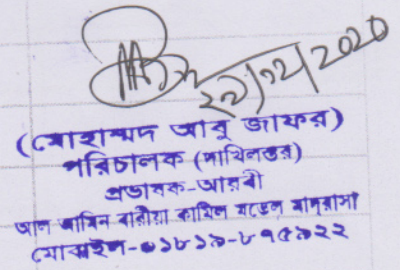 ২২/১২/2020
(মোহাম্মদ আবু জাফর)
পরিচালক (দাখিলস্তর)
প্রভাষক-আরবী
আল আমিন বারীয়া কামিল মডেল মাদ্রাসা
মোবাইল-০১৮১৯-৮৭৫৯২২